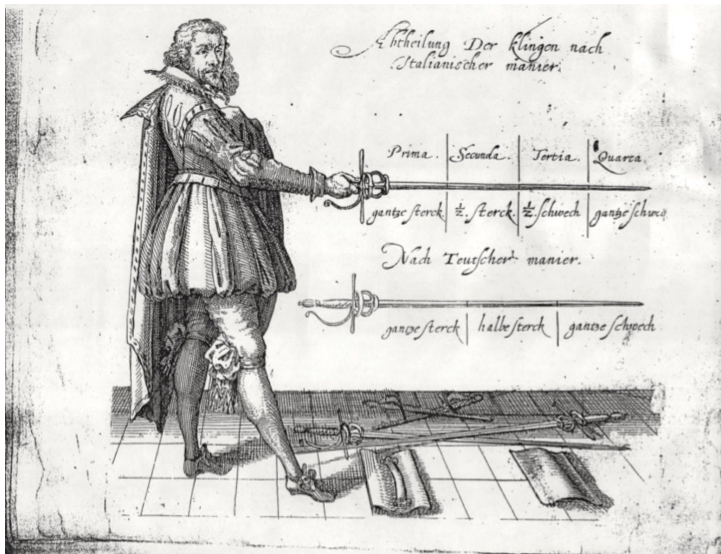 Abtheilung Der klingen nach
Italianischer manier.
Prima. Secunda. Tertia. Quarta.
gantze sterck ½. sterck. ½. schwech gantze schwec
Nach Teutscher manier.
gantze sterck halbe sterck gantze schwech